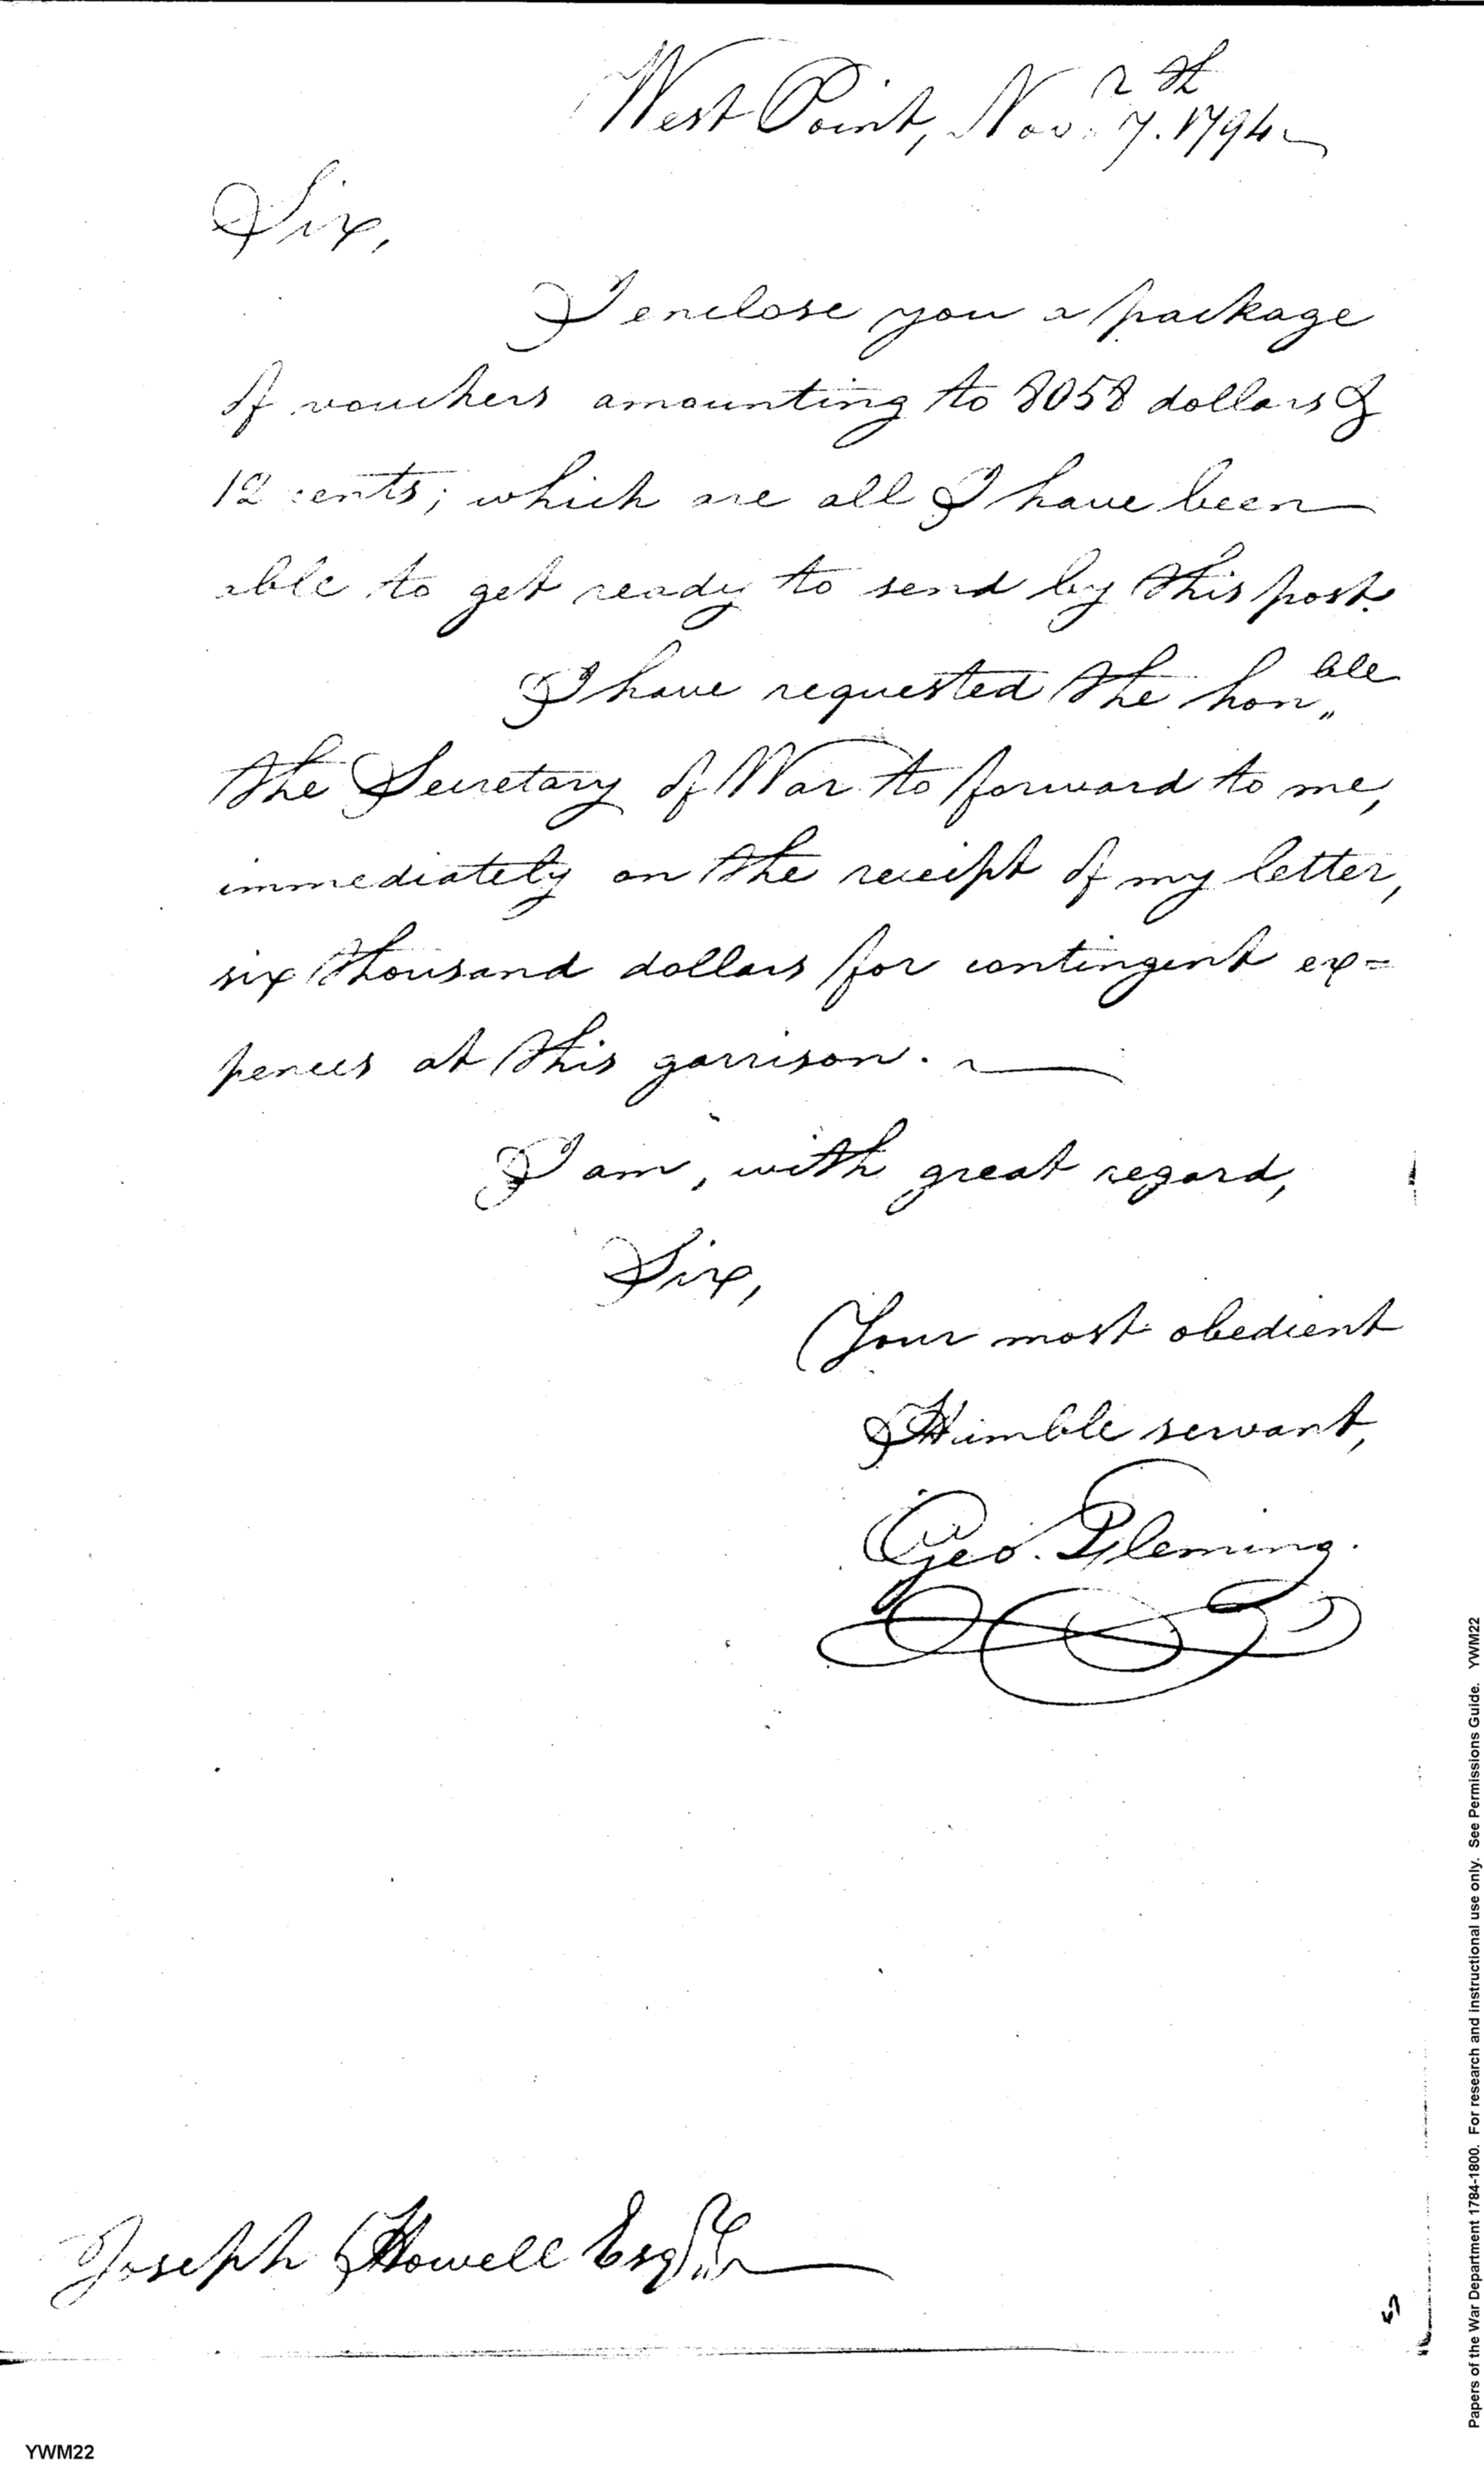 West Point, Nov.r 7.th 1794
Sir,
I enclose you a package
of vouchers amounting to 8058 dollars &
12 cents; which are all I have been
able to get ready to send by this post.
I have requested the hon,,ble
the Secretary of War to forward to me,
immediately on the receipt of my letter,
six thousand dollars for contingent ex=
pences at this garrison.
I am, with great regard,
Sir,
Your most obedient
Humble servant,
Geo. Fleming.
Joseph Howell Esqr
YWM22
Papers of the War Department 1784-1800. For research and instructional use only. See Permissions Guide. YWM22